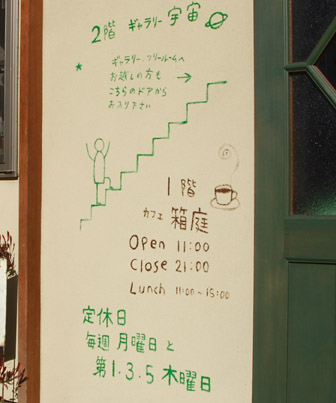 2階 ギャラリー 宇宙
ギャラリー、フリールームへ
お越しの方も
こちらのドアから
お入り下さい
1階
カフェ 箱庭
Open 11:00
Close 21:00
Lunch 11:00～15:00
定休日
毎週 月曜日と
第1.3.5 木曜日